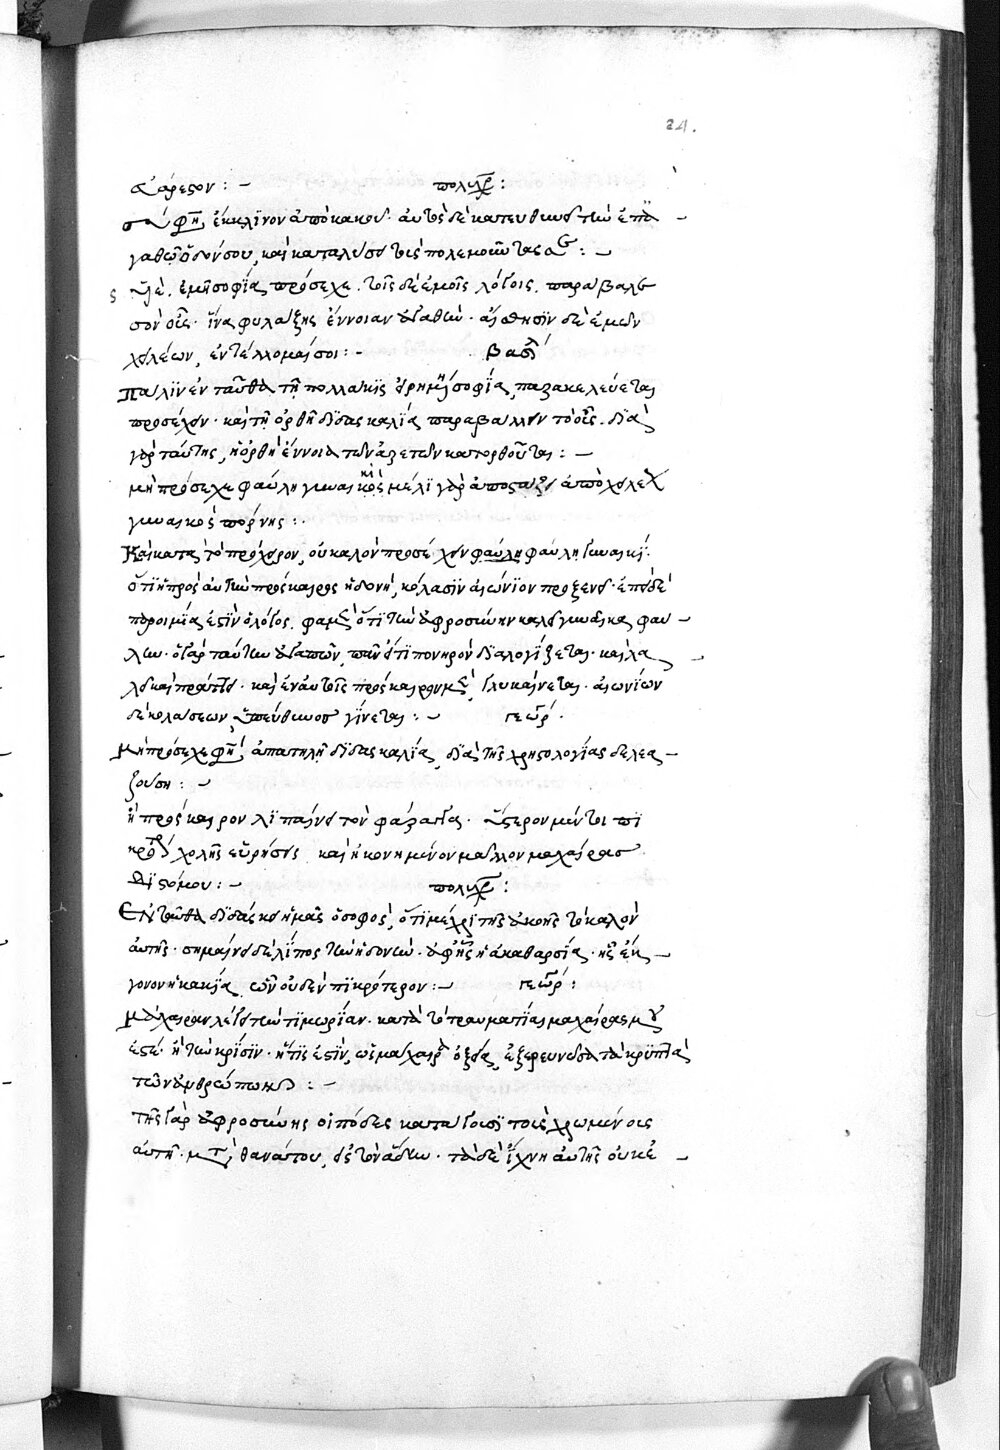 24.
εὐάρεστον : – πολυχρ :
σὺ φη ἔκκλινον ἀπὸ κακοῦ· αὐτὸς δὲ κατευθυνεῖ τὴν ἐπ ἀ –
γαθῶ ὁδόν σου, καὶ καταλύσει τοὺς πολεμοῦντάς σε : –
ε Υἱὲ, ἐμῇ σοφίᾳ πρόσεχε. τοῖς δὲ ἐμοῖς λόγοις, παράβαλε
σὸν οὖς· ἵνα φυλάξῃς ἔννοιαν ἀγαθήν· αἴσθησιν δὲ ἐμῶν
χειλέων, ἐντέλλομαί σοι : – βασι
Πάλιν ἐνταῦθα τῇ πολλάκις εἰρημένῃ σοφίᾳ, παρακελεύεται
προσέχειν· καὶ τῇ ὀρθῇ διδασκαλίᾳ παραβάλλειν τὸ οὖς. διὰ
γὰρ ταύτης, ἡ ὀρθὴ ἔννοια τῶν ἀρετῶν κατορθοῦται : –
μὴ πρόσεχε φαύλῃ γυναικί· μέλι γὰρ ἀποστάζει ἀπὸ χειλέων
γυναικὸς πόρνης : ·
Καὶ κατὰ τὸ πρόχειρον, οὐ καλὸν προσέχειν φαύλῃ φαύλῃ γυναικί·
ὅτι ἡ πρὸς αὐτὴν πρόσκαιρος ἡδονὴ, κόλασιν αἰώνιον προξενεῖ· ἐπεὶ δὲ
παροιμία ἐστὶν ὁ λόγος, φαμὲν ὅτι τὴν ἀφροσύνην καλεῖ γυναῖκα φαύ –
λην· ὁ γὰρ ταύτην ἀγαπῶν, πᾶν ὅτι πονηρὸν διαλογίζεται· καὶ λα –
λεῖ καὶ πράττει· καὶ ἐν αὐτοῖς πρόσκαιρον μὲν γλυκαίνεται· αἰωνίων
δὲ κολάσεων, ὑπεύθυνος γίνεται : – γεωρ ·
Μὴ πρόσεχε φη, ἀπατηλῇ διδασκαλίᾳ, διὰ τῆς χρηστολογίας δελεα –
ζούσῃ : –
ἣ πρὸς καιρὸν λιπαίνει τὸν φάρυγγα· ὕστερον μέντοι πι
κρότερον χολῆς εὑρήσεις καὶ ἠκονημένον μᾶλλον μαχαίρας
διστόμου : – πολυχρ :
Ἐνταῦθα διδάσκει ἡμᾶς ὁ σοφὸς, ὅτι μέχρι τῆς ἀκοῆς τὸ καλὸν
αὐτῆς· σημαίνει δὲ λίπος τὴν ἡδονήν· ἀφ ἧς ἡ ἀκαθαρσία· ἧς ἔκ –
γονον ἡ κακία, ὧν οὐδὲν πικρότερον : – γεωρ :
Μάχαιραν λέγει τὴν τιμωρίαν· κατὰ τὸ τραυματίαι μαχαίρας μου
ἐστέ· ἢ τὴν κρίσιν· ἥτις ἐστὶν, ὡς μάχαιρα ὀξεῖα, ἐξερευνῶσα τὰ κρυπτὰ
τῶν ἀνθρώπων : –
Τῆς γὰρ ἀφροσύνης οἱ πόδες κατάγουσι τοὺς χρωμένους
αὐτῇ· μετὰ θανάτου, εἰς τὸν ἅδην· τὰ δὲ ἴχνη αὐτῆς οὐκ ἐ –